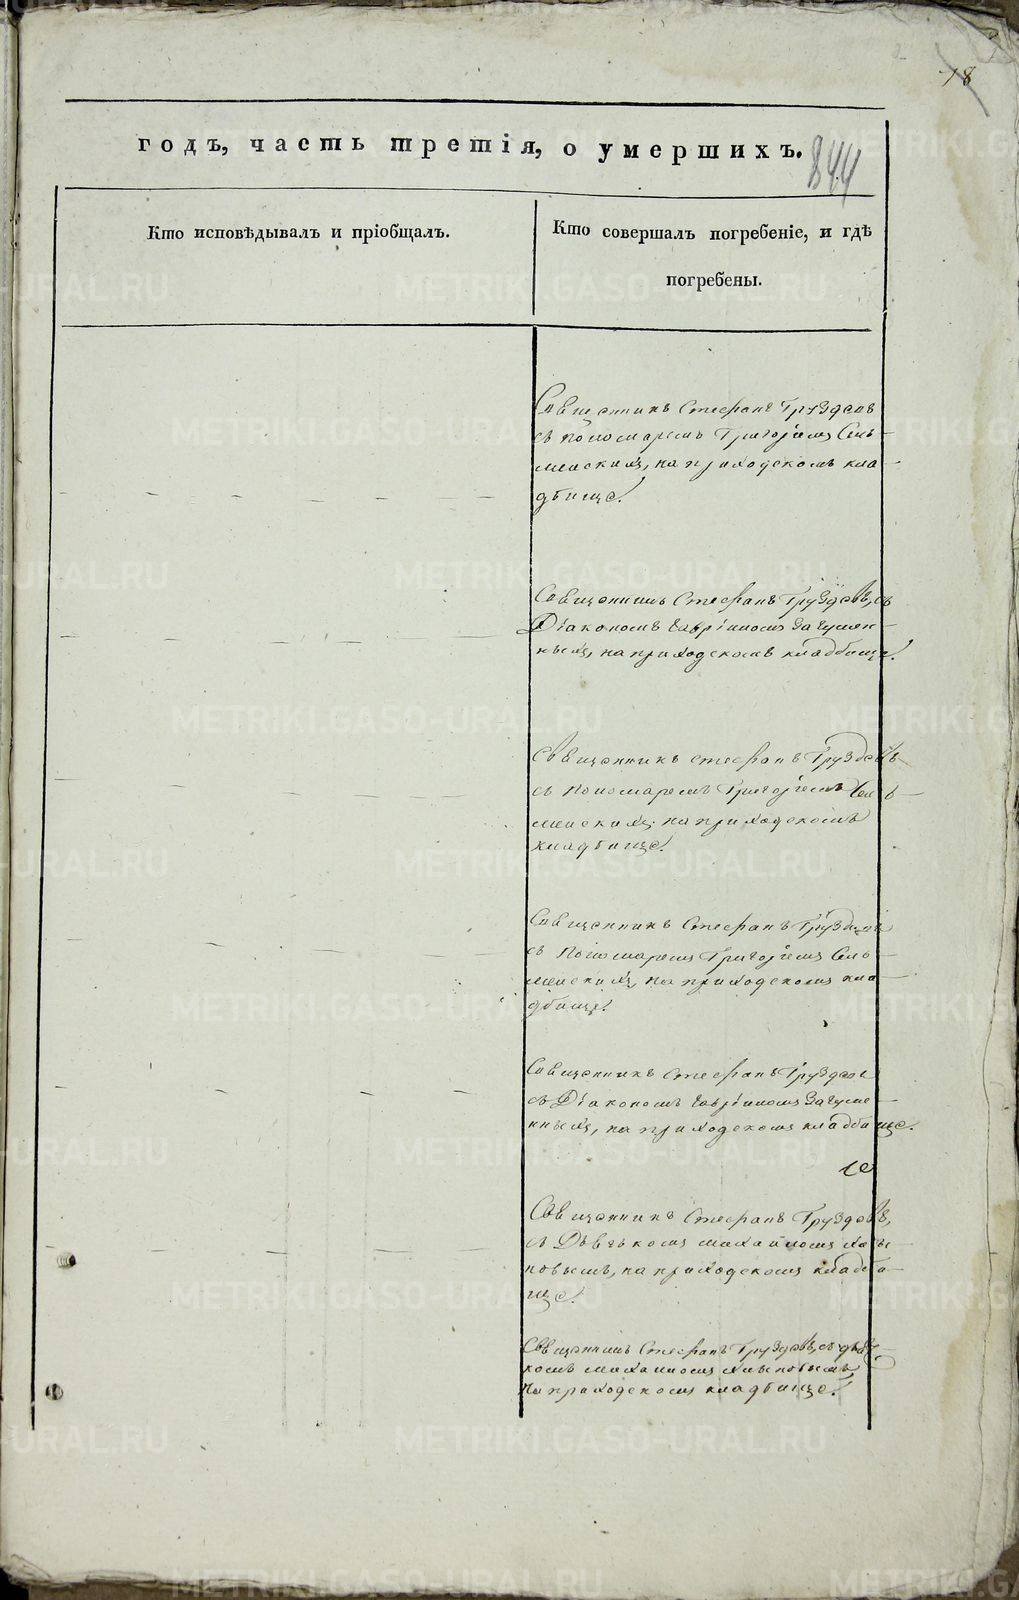 18
годъ, часть третія, о умершихъ.
844
Кто исповѣдывалъ и пріобщалъ.
Кто совершалъ погребеніе, и гдѣ
погребены.
Священникъ Стефанъ Груздевъ
съ Пономаремъ Григоріемъ
на приходскомъ кла
дбище.
Священникъ Стефанъ Груздевъ, съ
Діакономъ Гавріиломъ Загумен
нымъ, на приходскомъ кладбище.
Священникъ Стефанъ Груздевъ
съ Пономаремъ Григоріемъ
на приходскомъ
кладбище.
Священникъ Стефанъ Груздевъ
съ Пономаремъ Григоріемъ
на приходскомъ кла
дбище.
Священникъ Стефанъ Груздевъ
съ Діакономъ Гавріиломъ Загуме
ннымъ, на приходскомъ кладбище.
Священникъ Стефанъ Груздевъ,
съ Дьячкомъ Михаиломъ
на приходскомъ кладби
ще.
Священникъ Стефанъ Груздевъ, съ дьяч
комъ Михаиломъ
на приходскомъ кладбище.
METRIKI.GASO-URAL.RU